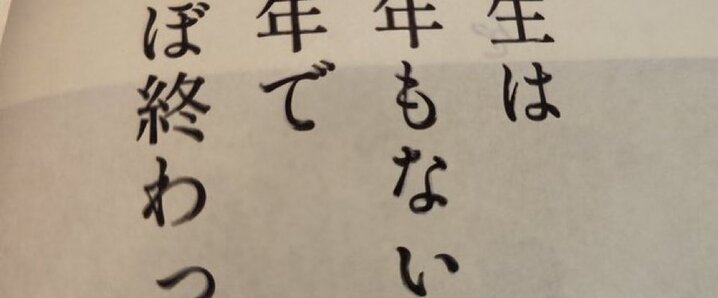 生は
年もない
年で
ぼ終わっ